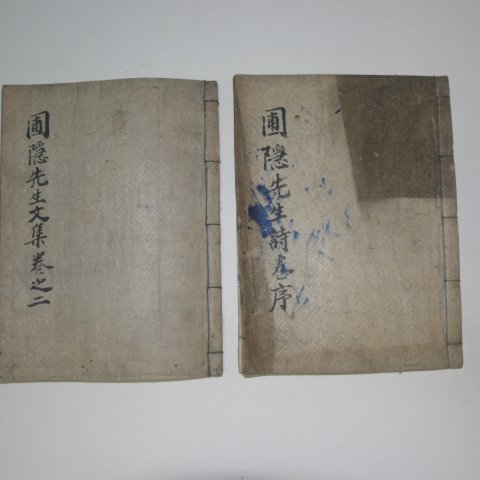 圃隱先生文集卷之二
圃隱先生詩卷序